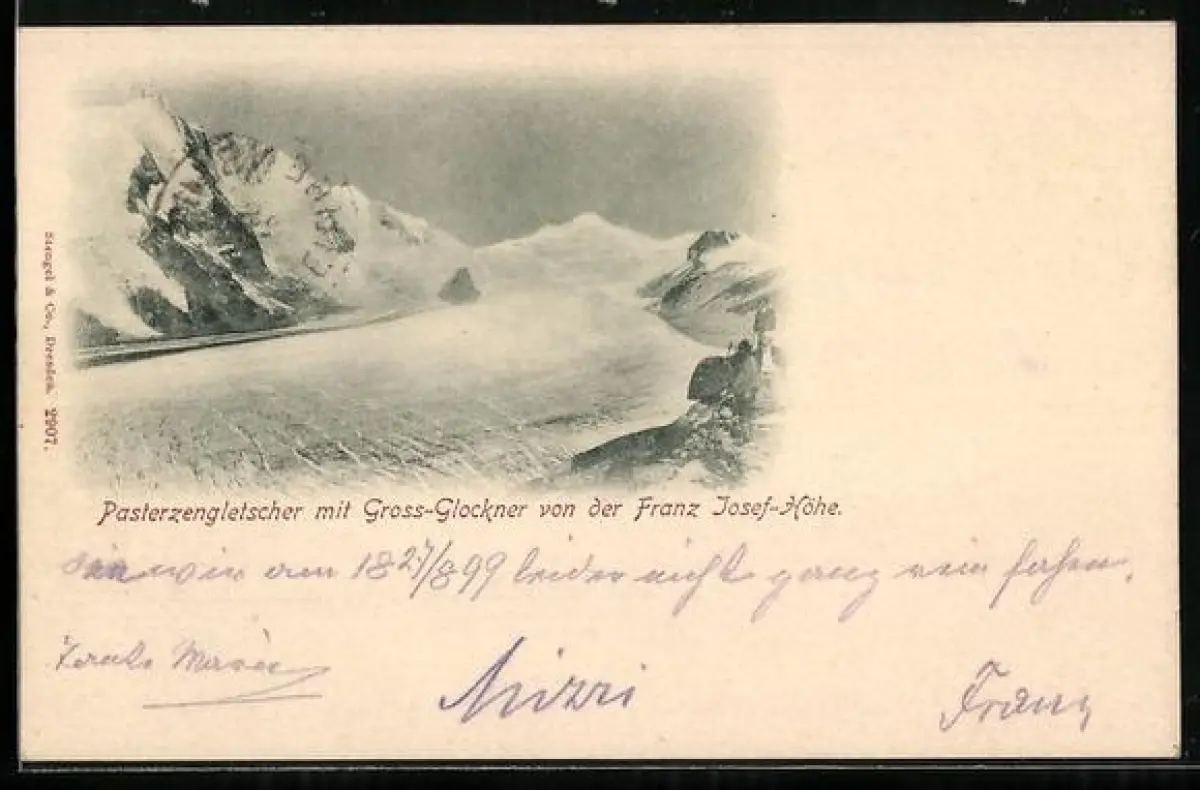 Stengel & Co., Dresden. 2907.
Pasterzengletscher mit Gross-Glockner von der Franz Josef-Höhe.
wir am 18 27/8 99 leider nicht ganz rein sahen.
Mizzi
Franz